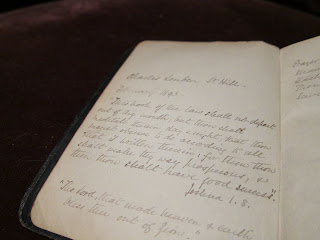 Charles London St Hill
"This book of the law shall not depart
out of thy mouth, but thou shalt
meditate therein day & night, that thou
mayest observe to do according to all
that is written therein: for then thou
shalt make thy way prosperous, &
then thou shalt have good success."
Joshua 1. 8.
"The Lord, that made heaven & earth
bless thee out of Sion."
Prayer